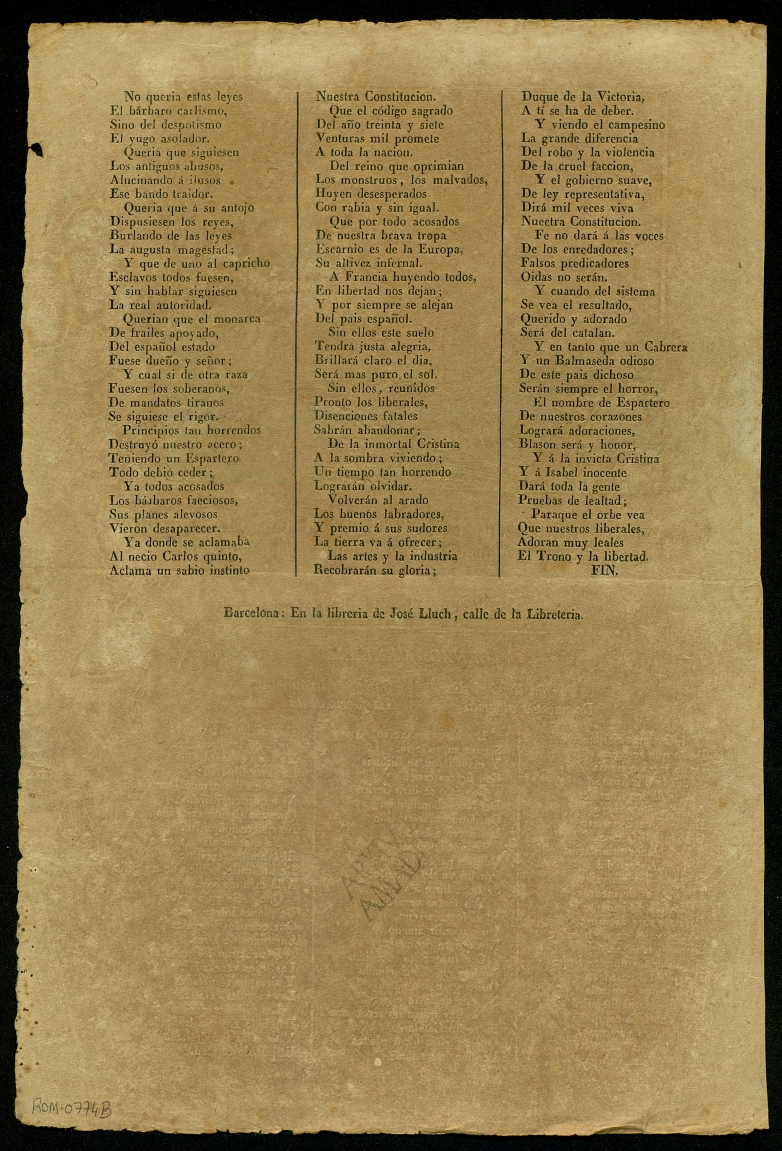 No queria estas leyes
El bárbaro carlismo,
Sino del despotismo
El yugo asolador.
Queria que siguiesen
Los antiguos abusos,
Alucinando á ilusos
Ese bando traidor.
Queria que á su antojo
Dispusiesen los reyes,
Burlando de las leyes
La augusta magestad;
Y que de uno al capricho
Esclavos todos fuesen,
Y sin hablar siguiesen
La real autoridad.
Querian que el monarca
De frailes apoyado,
Del español estado
Fuese dueño y señor;
Y cual si de otra raza
Fuesen los soberanos,
De mandatos tiranos
Se siguiese el rigor.
Principios tan horrendos
Destruyó nuestro acero;
Teniendo un Espartero
Todo debió ceder;
Ya todos acosados
Los bárbaros facciosos,
Sus planes alevosos
Vieron desaparecer.
Ya donde se aclamaba
Al necio Carlos quinto,
Aclama un sabio instinto
Nuestra Constitucion.
Que el código sagrado
Del año treinta y siete
Venturas mil promete
A toda la nacion.
Del reino que oprimian
Los monstruos, los malvados,
Huyen desesperados
Con rabia y sin igual.
Que por todo acosados
De nuestra brava tropa
Escarnio es de la Europa,
Su altivez infernal.
A Francia huyendo todos,
En libertad nos dejan;
Y por siempre se alejan
Del pais español.
Sin ellos este suelo
Tendrá justa alegria,
Brillará claro el dia,
Será mas puro el sol.
Sin ellos, reunidos
Pronto los liberales,
Disenciones fatales
Sabrán abandonar;
De la inmortal Cristina
A la sombra viviendo;
Un tiempo tan horrendo
Lograrán olvidar.
Volverán al arado
Los buenos labradores,
Y premio á sus sudores
La tierra va á ofrecer;
Las artes y la industria
Recobrarán su gloria;
Duque de la Victoria,
A tí se ha de deber.
Y viendo el campesino
La grande diferencia
Del robo y la violencia
De la cruel faccion,
Y el gobierno suave,
De ley representativa,
Dirá mil veces viva
Nueetra Constitucion.
Fe no dará á las voces
De los enredadores;
Falsos predicadores
Oidas no serán.
Y cuando del sistema
Se vea el resultado,
Querido y adorado
Será del catalan.
Y en tanto que un Cabrera
Y un Balmaseda odioso
De este pais dichoso
Serán siempre el horror,
El nombre de Espartero
De nuestros corazones
Logrará adoraciones,
Blason será y honor,
Y á la invicta Cristina
Y á Isabel inocente
Dará toda la gente
Pruebas de lealtad;
Paraque el orbe vea
Que nuestros liberales,
Adoran muy leales
El Trono y la libertad.
FIN.
Barcelona: En la libreria de José Lluch, calle de la Libreteria.
ROM-0774B